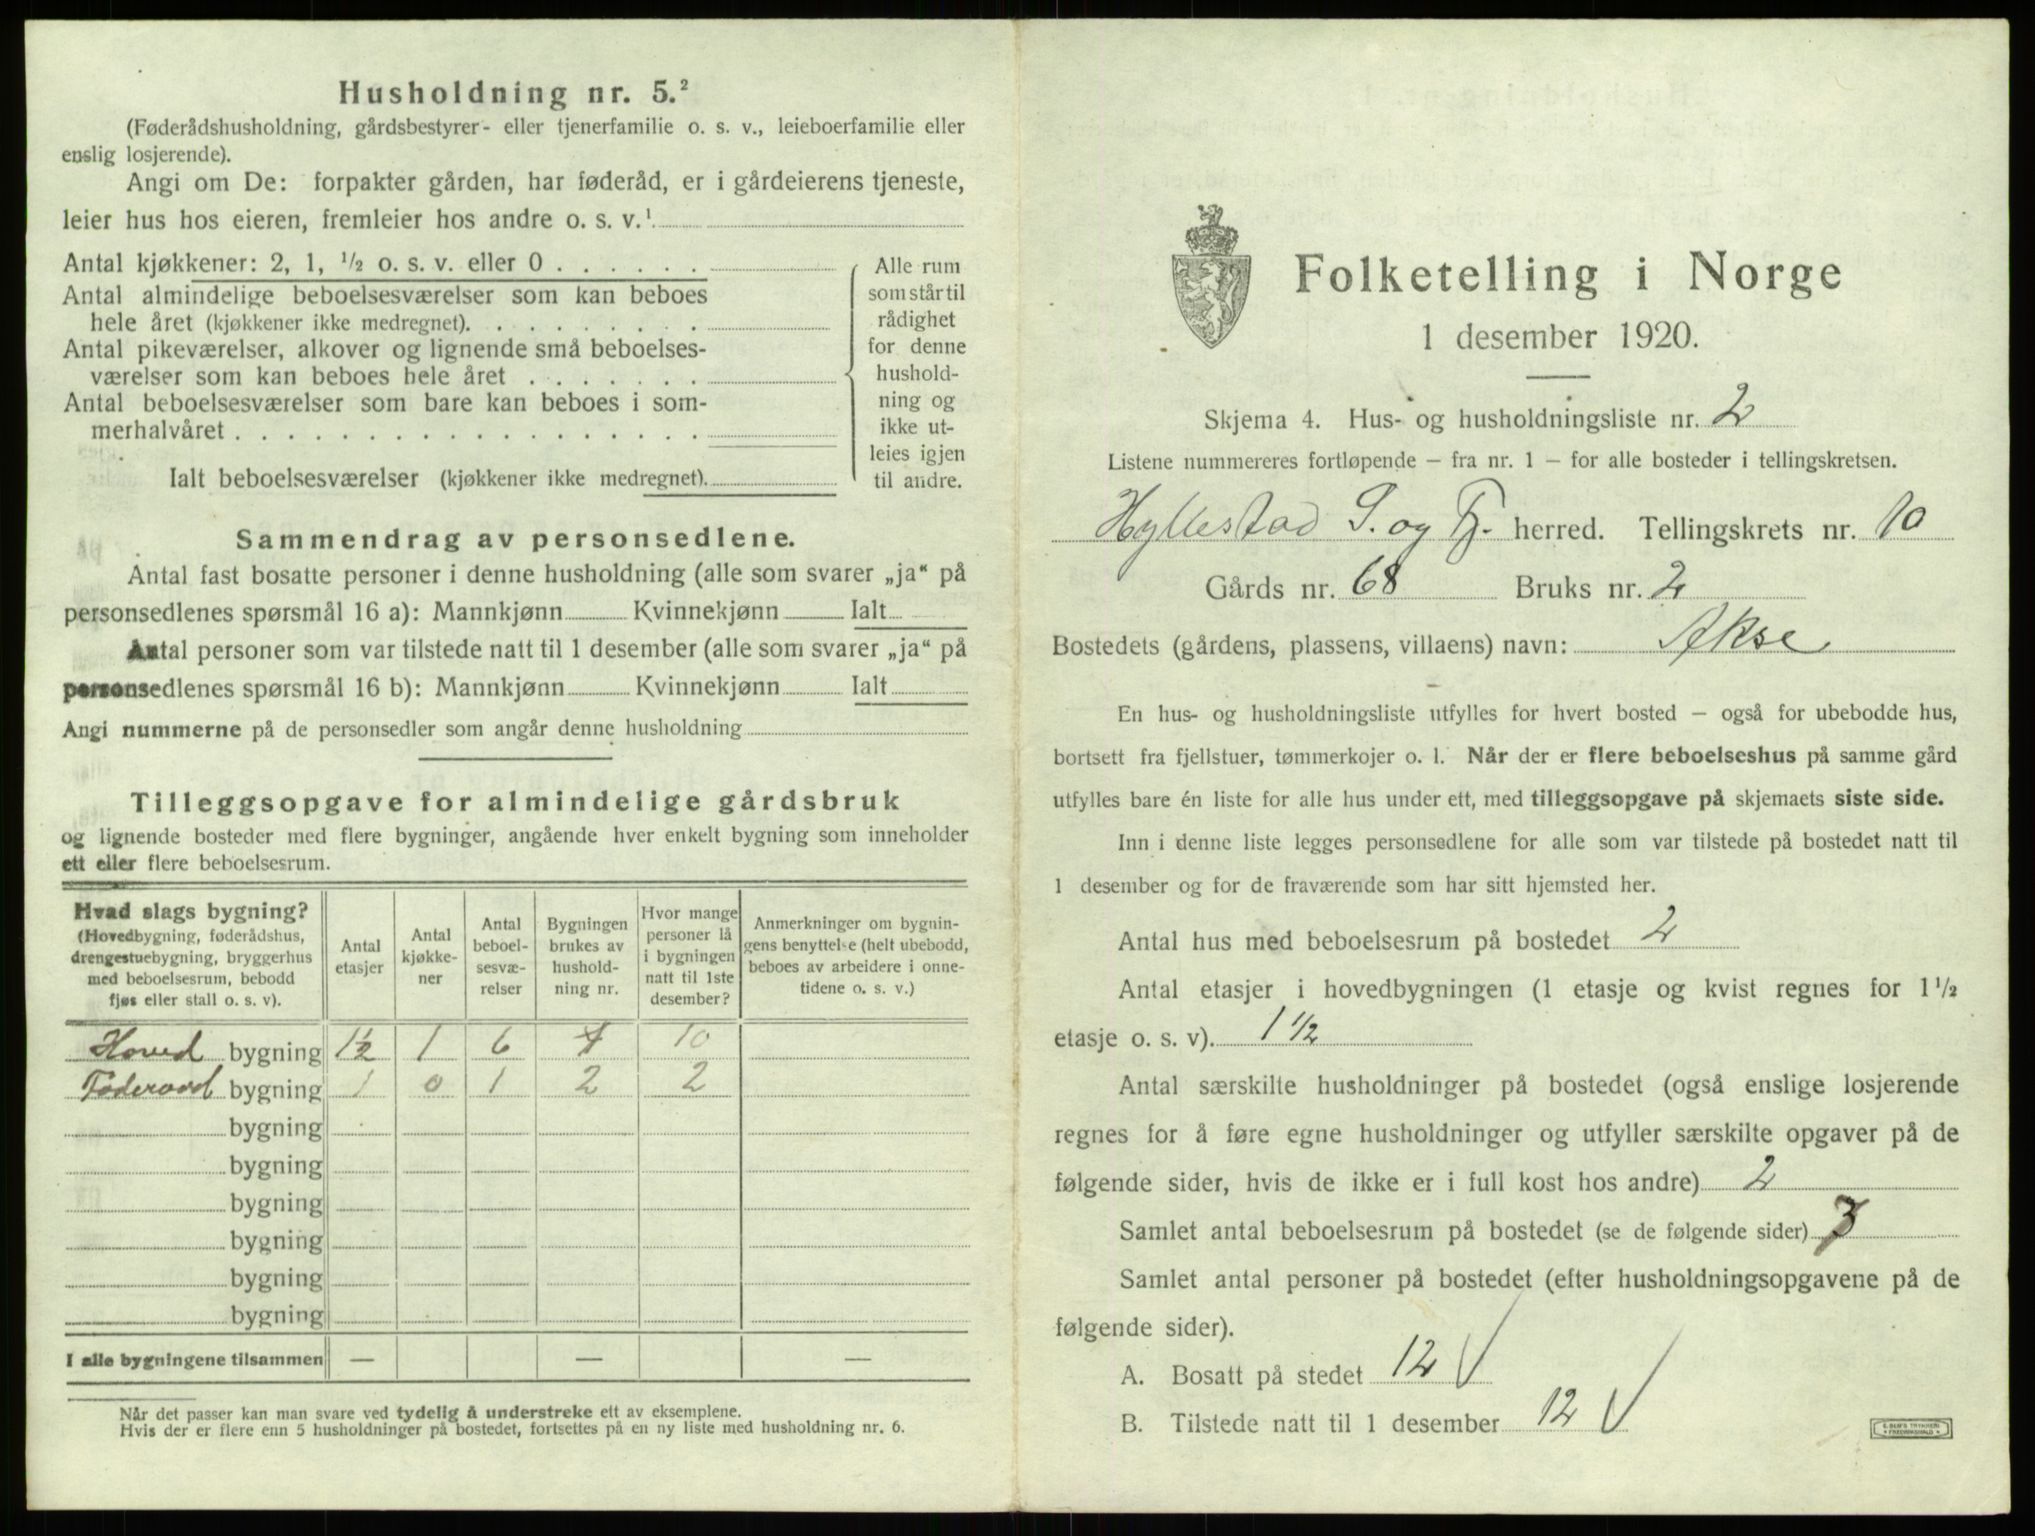 Husholdning nr. 5.²
(Føderådshusholdning, gårdsbestyrer- eller tjenerfamilie o. s. v., leieboerfamilie eller
enslig losjerende).
Angi om De: forpakter gården, har føderåd, er i gårdeierens tjeneste,
leier hus hos eieren, fremleier hos andre o. s. v.¹
Antal kjøkkener: 2, 1, ½ o. s. v. eller 0 . . . . . .
Antal almindelige beboelsesværelser som kan beboes
hele året (kjøkkener ikke medregnet). . . . . . . . .
Antal pikeværelser, alkover og lignende små beboelses-
værelser som kan beboes hele året . . . . . . .
Antal beboelsesværelser som bare kan beboes i som-
merhalvåret . . . . . . . . . . . . . . . . . .
Ialt beboelsesværelser (kjøkkener ikke medregnet).
Alle rum
som står til
rådighet
for denne
hushold-
ning og
ikke ut-
leies igjen
til andre.
Sammendrag av personsedlene.
Antal fast bosatte personer i denne husholdning (alle som svarer „ja“ på
personsedlenes spørsmål 16 a): Mannkjønn Kvinnekjønn Ialt
Antal personer som var tilstede natt til 1 desember (alle som svarer „ja“ på
personsedlenes spørsmål 16 b): Mannkjønn Kvinnekjønn Ialt
Angi nummerne på de personsedler som angår denne husholdning
Tilleggsopgave for almindelige gårdsbruk
og lignende bosteder med flere bygninger, angående hver enkelt bygning som inneholder
ett eller flere beboelsesrum.
Hvad slags bygning?
(Hovedbygning, føderådshus,
drengestuebygning, bryggerhus
med beboelsesrum, bebodd
fjøs eller stall o. s. v).
Antal
etasjer
Antal
kjøkke-
ner
Antal
beboel-
sesvæ-
relser
Bygningen
brukes av
hushold-
ning nr.
Hvor mange
personer lå
i bygningen
natt til 1ste
desember?
Anmerkninger om bygnin-
gens benyttelse (helt ubebodd,
beboes av arbeidere i onne-
tidene o. s. v.)
Hoved bygning 1½ 1 6 1 10
Føderaad bygning 1 0 1 2 2
bygning
bygning
bygning
bygning
bygning
bygning
I alle bygningene tilsammen — — —
Når det passer kan man svare ved tydelig å understreke ett av eksemplene.
Hvis der er flere enn 5 husholdninger på bostedet, fortsettes på en ny liste med husholdning nr. 6.
Folketelling i Norge
1 desember 1920.
Skjema 4. Hus- og husholdningsliste nr. 2
Listene nummereres fortløpende – fra nr. 1 – for alle bosteder i tellingskretsen.
Hyllestad S. og Fj. herred. Tellingskrets nr. 10
Gårds nr. 68 Bruks nr. 2
Bostedets (gårdens, plassens, villaens) navn: Akse
En hus- og husholdningsliste utfylles for hvert bosted – også for ubebodde hus,
bortsett fra fjellstuer, tømmerkojer o. l. Når der er flere beboelseshus på samme gård
utfylles bare én liste for alle hus under ett, med tilleggsopgave på skjemaets siste side.
Inn i denne liste legges personsedlene for alle som var tilstede på bostedet natt til
1 desember og for de fraværende som har sitt hjemsted her.
Antal hus med beboelsesrum på bostedet 2
Antal etasjer i hovedbygningen (1 etasje og kvist regnes for 1½
etasje o. s. v). 1 ½
Antal særskilte husholdninger på bostedet (også enslige losjerende
regnes for å føre egne husholdninger og utfyller særskilte opgaver på de
følgende sider, hvis de ikke er i full kost hos andre) 2
Samlet antal beboelsesrum på bostedet (se de følgende sider)
Samlet antal personer på bostedet (efter husholdningsopgavene på de
følgende sider).
A. Bosatt på stedet 12 √
B. Tilstede natt til 1 desember 12 √